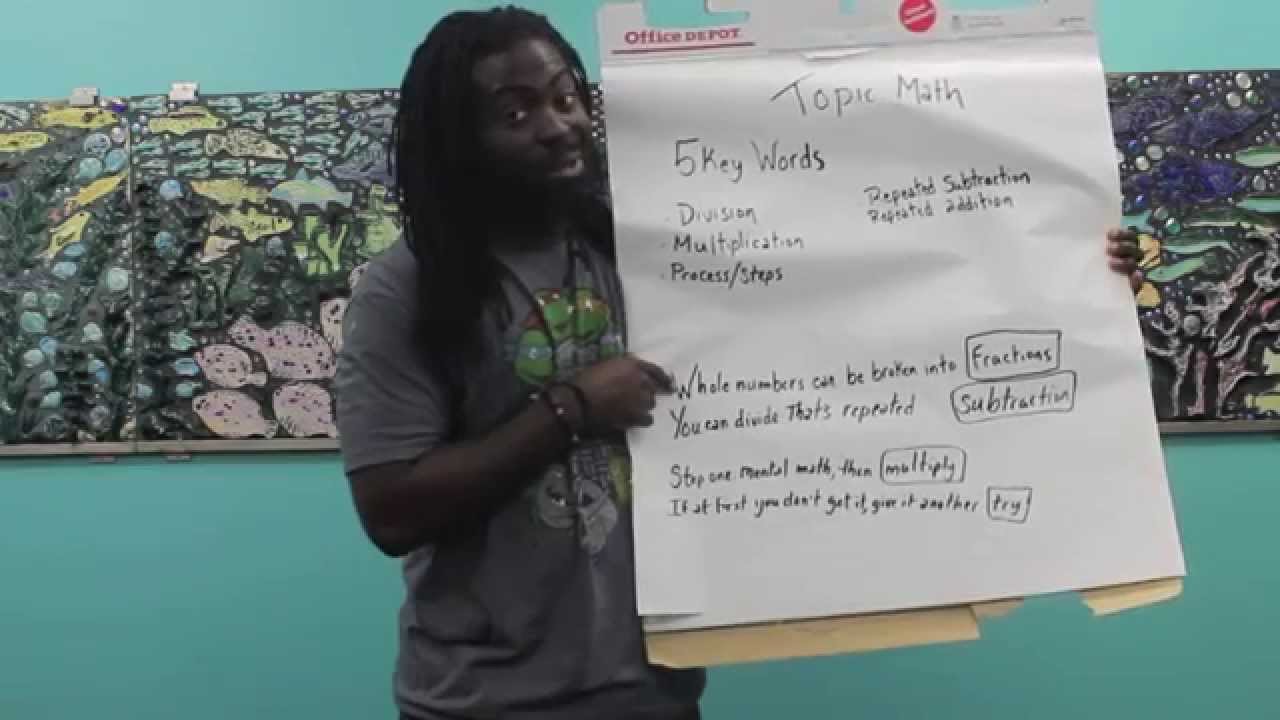 Office DEPOT
Topic Math
5 Key Words
Repeated Subtraction
Repeated addition
· Division
· Multiplication
· Process/Steps
Whole numbers can be broken into Fractions
You can divide That's repeated Subtraction
Step one mental math, then multiply
If at first you don't get it, give it another try